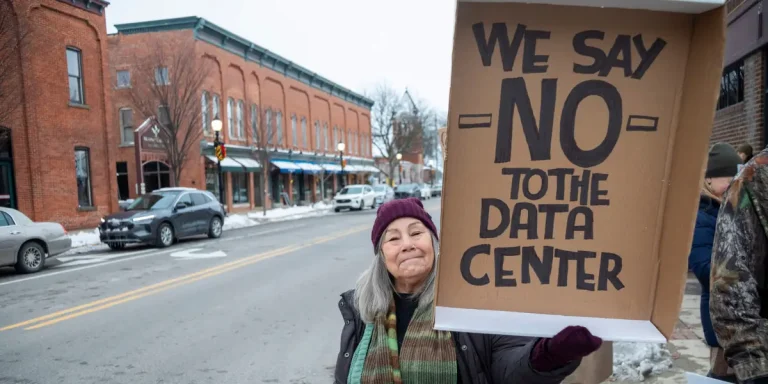 WE SAY
-NO-
TO THE
DATA
CENTER